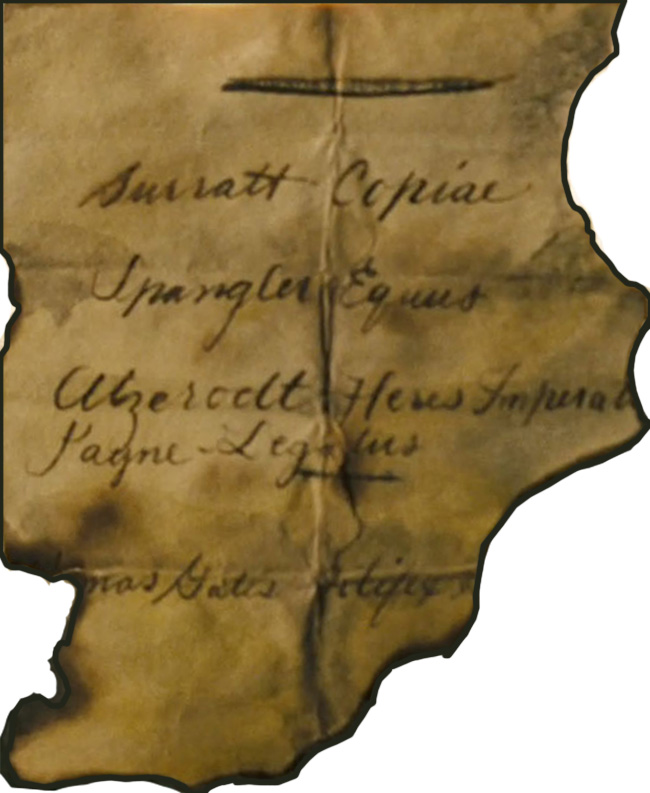 Surratt Copiae
Spangler Equus
Atzerodt Heres Imperat
Payne - Legatus
mas Gates Artifex